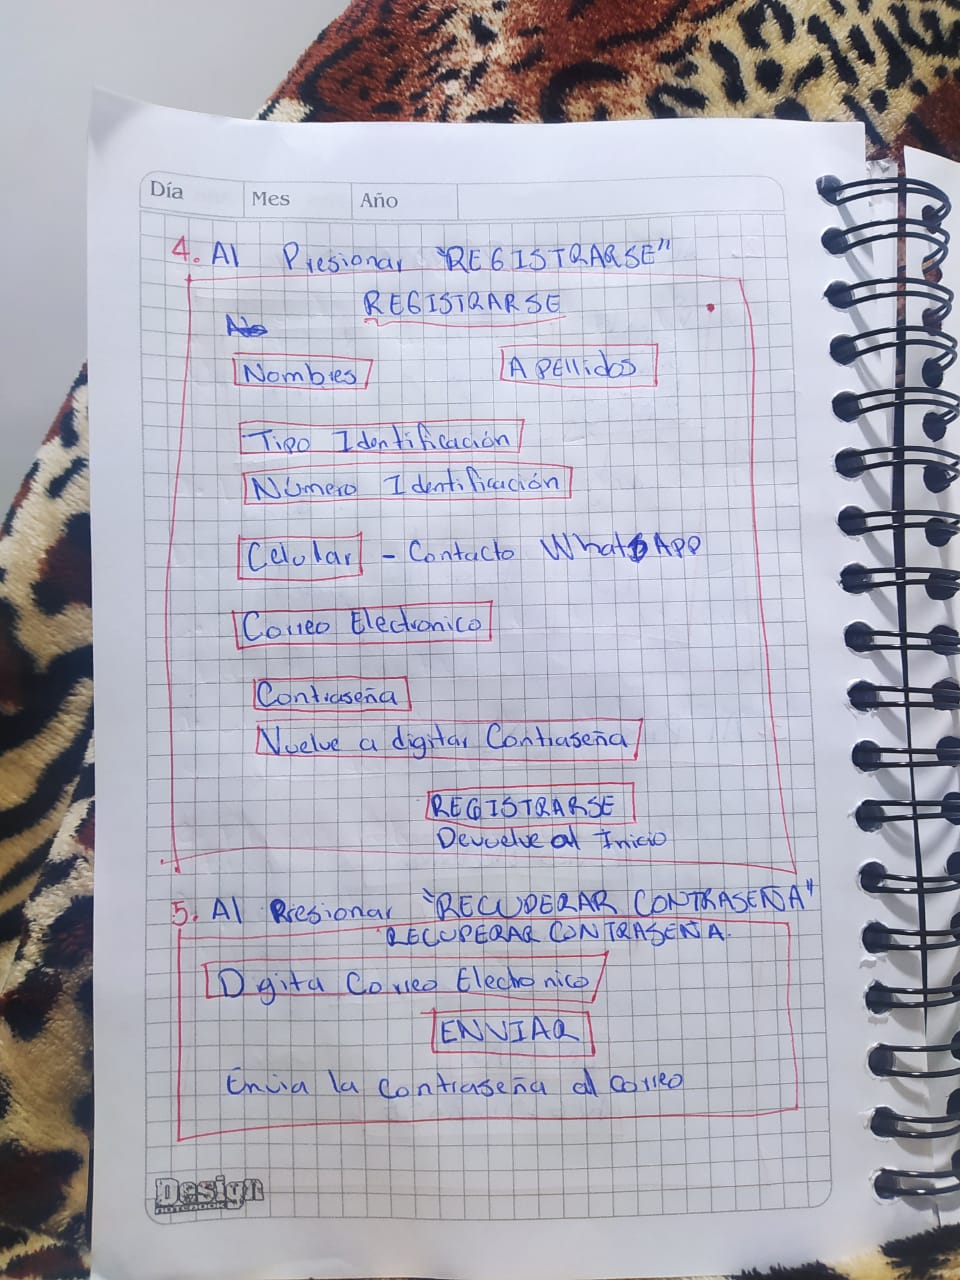 Día Mes Año
4. Al Presionar "REGISTRARSE"
REGISTRARSE
Nombres Apellidos
Tipo Identificación
Número Identificación
Celular - Contacto WhatsApp
Correo Electronico
Contraseña
Vuelve a digitar Contraseña
REGISTRARSE
Devuelve al Inicio
5. Al Presionar "RECUPERAR CONTRASEÑA"
RECUPERAR CONTRASEÑA.
Digita Correo Electronico
ENVIAR
Envia la contraseña al correo
Design
NOTEBOOK